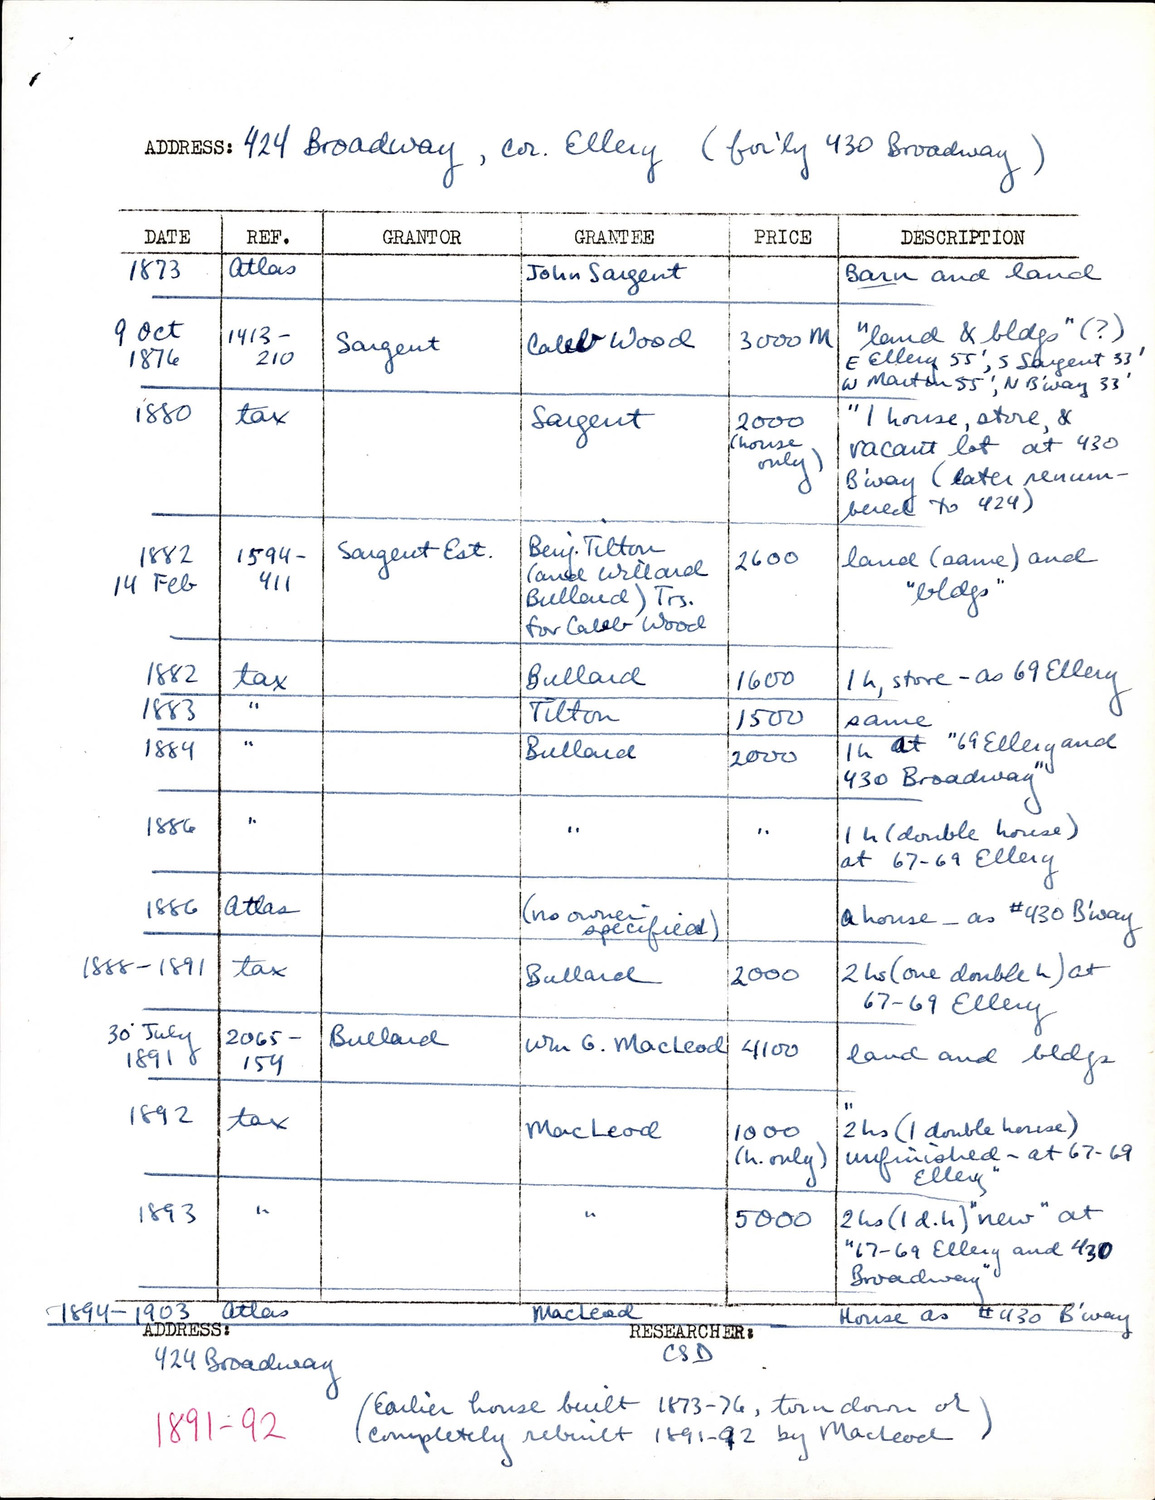 ADDRESS: 424 Broadway, cor. Ellery (for'ly 430 Broadway)
DATE REF. GRANTOR GRANTEE PRICE DESCRIPTION
1873 Atlas John Sargent Barn and land
9 Oct 1876 1413-210 Sargent Caleb Wood 3000 M "land & bldgs" (?)
E Ellery 55', S Sargent 33'
W Marton 55', N B'way 33'
1880 tax Sargent 2000 (house only) "1 house, store, &
vacant lot at 430
B'way (later renum-
bered to 424)
1882 14 Feb 1594-411 Sargent Est. Benj. Tilton
(and Willard
Bullard) Trs.
for Caleb Wood 2600 land (same) and
"bldgs"
1882 tax Bullard 1600 1 h, store - as 69 Ellery
1883 " Tilton 1500 same
1884 " Bullard 2000 1h at "69 Ellery and
430 Broadway"
1886 " " " 1 h (double house)
at 67-69 Ellery
1886 Atlas (no owner specified) a house - as #430 B'way
1888-1891 tax Bullard 2000 2 hs (one double h) at
67-69 Ellery
30 July 1891 2065-154 Bullard Wm G. MacLeod 4100 land and bldgs
1892 tax MacLeod 1000 (h. only) "2 hs (1 double house)
unfinished - at 67-69
Ellery"
1893 " " 5000 2 hs (1 d.h) "new" at
"67-69 Ellery and 430
Broadway"
1894-1903 Atlas MacLeod House as #430 B'way
ADDRESS: RESEARCHER:
424 Broadway CSD
1891-92 (Earlier house built 1873-76, torn down or
completely rebuilt 1891-92 by MacLeod)